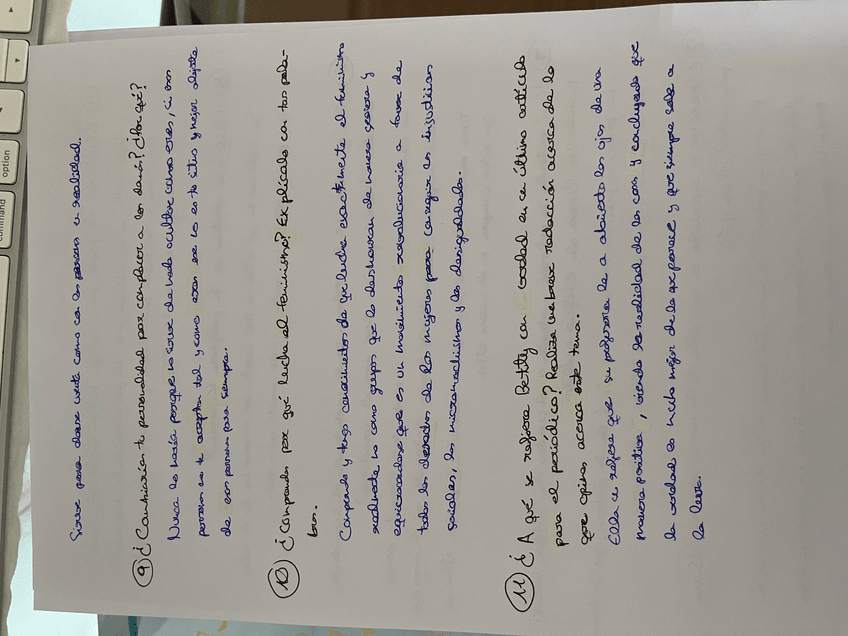 Sirve para darse cuenta como son las personas en realidad.
9 ¿Cambiarías tu personalidad por complacer a los demás? ¿Por qué?
Nunca lo haría porque no sirve de nada ocultar como eres, si esa
persona no te acepta tal y como eres ese no es tu sitio y mejor aléjate
de esa persona para siempre.
10 ¿Comprendes por qué lucha el feminismo? Explícalo con tus pala-
bras.
Comprendo y tengo conocimientos de que lucha exactamente el feminismo
realmente no como grupos que lo deshonran de manera grosera y
equivocadamente que es un movimiento revolucionario a favor de
todos los derechos de las mujeres para conseguir las injusticias
sociales, los micromachismos y las desigualdades.
11 ¿A qué se refiere Betty con verdad en su último artículo
para el periódico? Realiza una breve redacción acerca de lo
que opinas acerca este tema.
Ella se refiere que su profesora le a abierto los ojos de una
manera positiva, viendo la realidad de las cosas y concluyendo que
la verdad es mucho mejor de lo que parece y que siempre sale a
la luz.